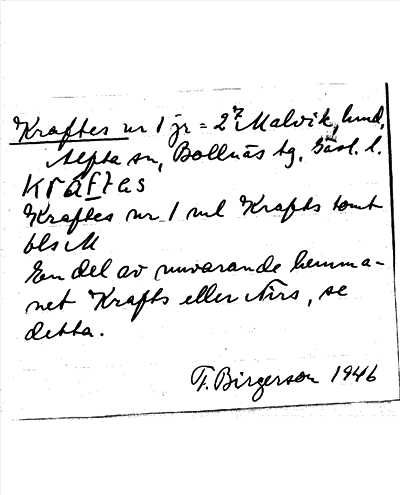 Kraftes nr 1 jr = 2⁷ Malvik, lund,
Alfta sn, Bollnäs tg, Gävl. l.
kraftas
Kraftes nr 1 ml Krafts tomt
bls M
En del av nuvarande hemma-
net Krafts eller Nirs, se
detta.
F. Birgerson 1946